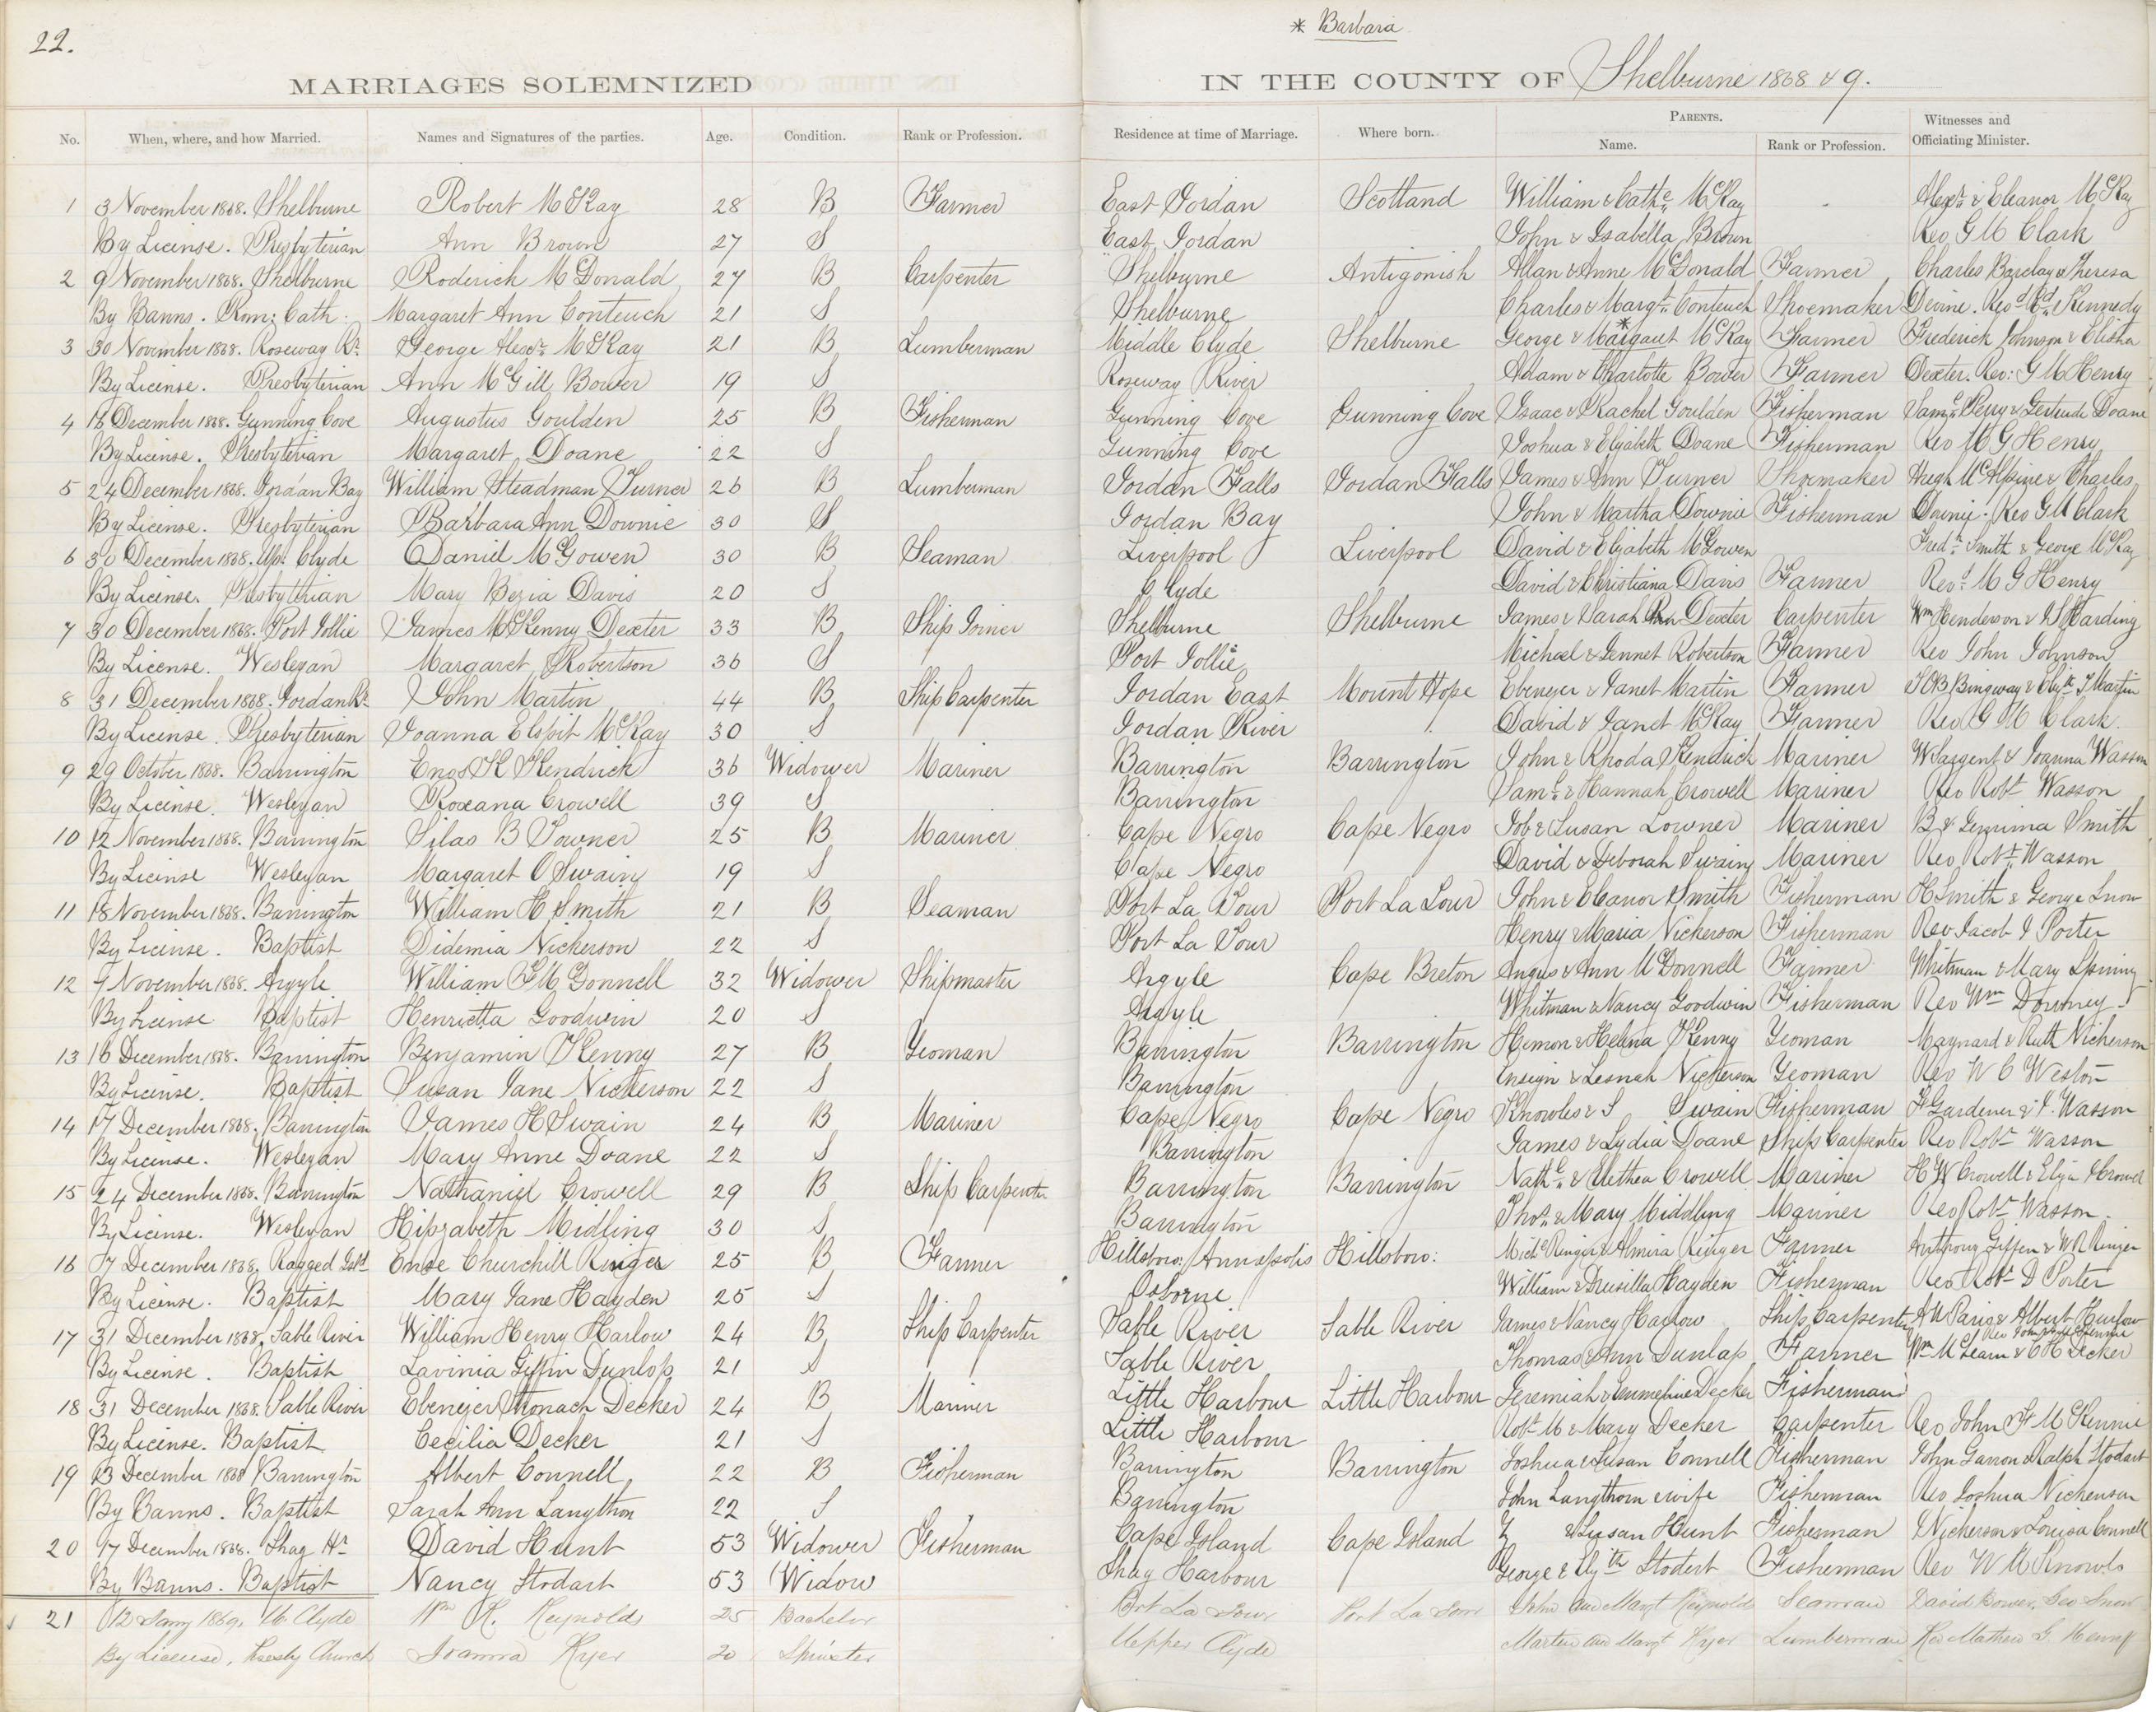 22.
* Barbara
MARRIAGES SOLEMNIZED IN THE COUNTY OF Shelburne 1868 & 9.
No. When, where, and how Married. Names and Signatures of the parties. Age. Condition. Rank or Profession. Residence at time of Marriage. Where born. PARENTS. Name. Rank or Profession. Witnesses and Officiating Minister.
1 3 November 1868. Shelburne Robert McKay 28 B Farmer East Jordan Scotland William & Cathe. McKay Alexr. & Eleanor McKay
By License. Presbyterian Ann Brown 27 S East Jordan John & Isabella Brown Rev G M Clark
2 9 November 1868. Shelburne Roderick McDonald 27 B Carpenter Shelburne Antigonish Allan & Anne McDonald Farmer Charles Barclay & Theresa
By Banns. Rom: Cath: Margaret Ann Conteuch 21 S Shelburne Charles & Margt. Conteuch Shoemaker Devine. Revd. Kennedy
3 30 November 1868. Roseway Rr. George Alexr. McKay 21 B Lumberman Middle Clyde Shelburne George & *Margaret McKay Farmer Frederick Johnson & Elisha
By License. Presbyterian Ann McGill Bower 19 S Roseway River Adam & Charlotte Bower Farmer Dexter. Rev: G M Henry
4 16 December 1868. Gunning Cove Augustus Goulden 25 B Fisherman Gunning Cove Gunning Cove Isaac & Rachel Goulden Fisherman Saml. Perry & Gertrude Doane
By License. Presbyterian Margaret Doane 22 S Gunning Cove Joshua & Elizabeth Doane Fisherman Rev M G Henry
5 24 December 1868. Jordan Bay William Steadman Turner 26 B Lumberman Jordan Falls Jordan Falls James & Ann Turner Shoemaker Hugh McAlpine & Charles
By License. Presbyterian Barbara Ann Downie 30 S Jordan Bay John & Martha Downie Fisherman Downie. Rev G M Clark
6 30 December 1868. Up. Clyde Daniel McGowen 30 B Seaman Liverpool Liverpool David & Elizabeth McGowen Fredk. Smith & George McKay
By License. Presbyterian Mary Bezia Davis 20 S Clyde David & Christiana Davis Farmer Revd. M G Henry
7 30 December 1868. Port Jollie James McKenny Dexter 33 B Ship Joiner Shelburne Shelburne James & Sarah Ann Dexter Carpenter Wm Henderson & Harding
By License. Wesleyan Margaret Robertson 36 S Port Jollie Michael & Jennet Robertson Farmer Rev John Johnson
8 31 December 1868. Jordan Rr. John Martin 44 B Ship Carpenter Jordan East Mount Hope Ebenezer & Janet Martin Farmer Martin
By License. Presbyterian Joanna Elspit McKay 30 S Jordan River David & Janet McKay Farmer Rev G M Clark
9 29 October 1868. Barrington Enos K Kendrick 36 Widower Mariner Barrington Barrington John & Rhoda Kendrick Mariner W Sargent & Joanna Wasson
By License. Wesleyan Roxana Crowell 39 S Barrington Saml. & Hannah Crowell Mariner Rev Robt Wasson
10 12 November 1868. Barrington Silas B Towner 25 B Mariner Cape Negro Cape Negro Job & Susan Lowner Mariner B & Jemima Smith
By License Wesleyan Margaret O Swain 19 S Cape Negro David & Deborah Swain Mariner Rev Robt. Wasson
11 18 November 1868. Barrington William H Smith 21 B Seaman Port La Tour Port La Tour John & Eleanor Smith Fisherman H Smith & George Snow
By License. Baptist Didemia Nickerson 22 S Port La Tour Henry & Maria Nickerson Fisherman Rev Jacob I Porter
12 7 November 1868. Argyle William F McDonnell 32 Widower Shipmaster Argyle Cape Breton Angus & Ann McDonnell Farmer Whitman & Mary Spinny
By License Baptist Henrietta Goodwin 20 S Argyle Whitman & Nancy Goodwin Fisherman Rev Wm Downey
13 16 December 1868. Barrington Benjamin Kenny 27 B Yeoman Barrington Barrington Hemon & Helena Kenny Yeoman Maynard & Ruth Nickerson
By License. Baptist Susan Jane Nickerson 22 S Barrington Ensign & Lesnah Nickerson Yeoman Rev W C Weston
14 17 December 1868. Barrington James H Swain 24 B Mariner Cape Negro Cape Negro Knowles & S Swain Fisherman F Gardener & J. Wasson
By License. Wesleyan Mary Anne Doane 22 S Barrington James & Lydia Doane Ship Carpenter Rev Robt Wasson
15 24 December 1868. Barrington Nathaniel Crowell 29 B Ship Carpenter Barrington Barrington Nathl. & Alethea Crowell Mariner H W Crowell & Eliza Crowell
By License. Wesleyan Hipzabeth Midling 30 S Barrington Thos. & Mary Middling Mariner Rev Robt Wasson.
16 17 December 1868. Ragged Isld Ense Churchill Ringer 25 B Farmer Hillsboro: Annapolis Hillsboro: Michl Ringer & Almira Ringer Farmer Anthony Giffen & W R Ringer
By License. Baptist Mary Jane Hayden 25 S Osborne William & Drusilla Hayden Fisherman Rev Robt D Porter
17 31 December 1868. Sable River William Henry Harlow 24 B Ship Carpenter Sable River Sable River James & Nancy Harlow Ship Carpenter Albert Harlow
By License. Baptist Lavinia Giffin Dunlop 21 S Sable River Thomas & Ann Dunlap Farmer Wm McLearn & C H Decker
18 31 December 1868. Sable River Ebenezer Stronach Decker 24 B Mariner Little Harbour Little Harbour Jeremiah & Emmeline Decker Fisherman
By License. Baptist Cecilia Decker 21 S Little Harbour Robt M & Mary Decker Carpenter Rev John F McKennie
19 13 December 1868 Barrington Albert Connell 22 B Fisherman Barrington Barrington Joshua & Susan Connell Fisherman John Garron & Ralph Stodart
By Banns. Baptist Sarah Ann Langthon 22 S Barrington John Langthorn & wife Fisherman Rev Joshua Nickerson
20 17 December 1868. Shag Hr David Hunt 53 Widower Fisherman Cape Island Cape Island & Susan Hunt Fisherman Nickerson & Louisa Connell
By Banns. Baptist Nancy Stodart 53 Widow Shag Harbour George & Elyzth Stodert Fisherman Rev W M Knowls
21 12 Jany 1869, U. Clyde Wm H. Reynolds 25 Bachelor Port La Tour Port La Tour John and Margt Reynolds Seaman David Bower, Geo Snow
By License, Presby Church Joanna Hyer 20 Spinster Upper Clyde Martin and Margt Hyer Lumberman Rev Mathew G. Henry